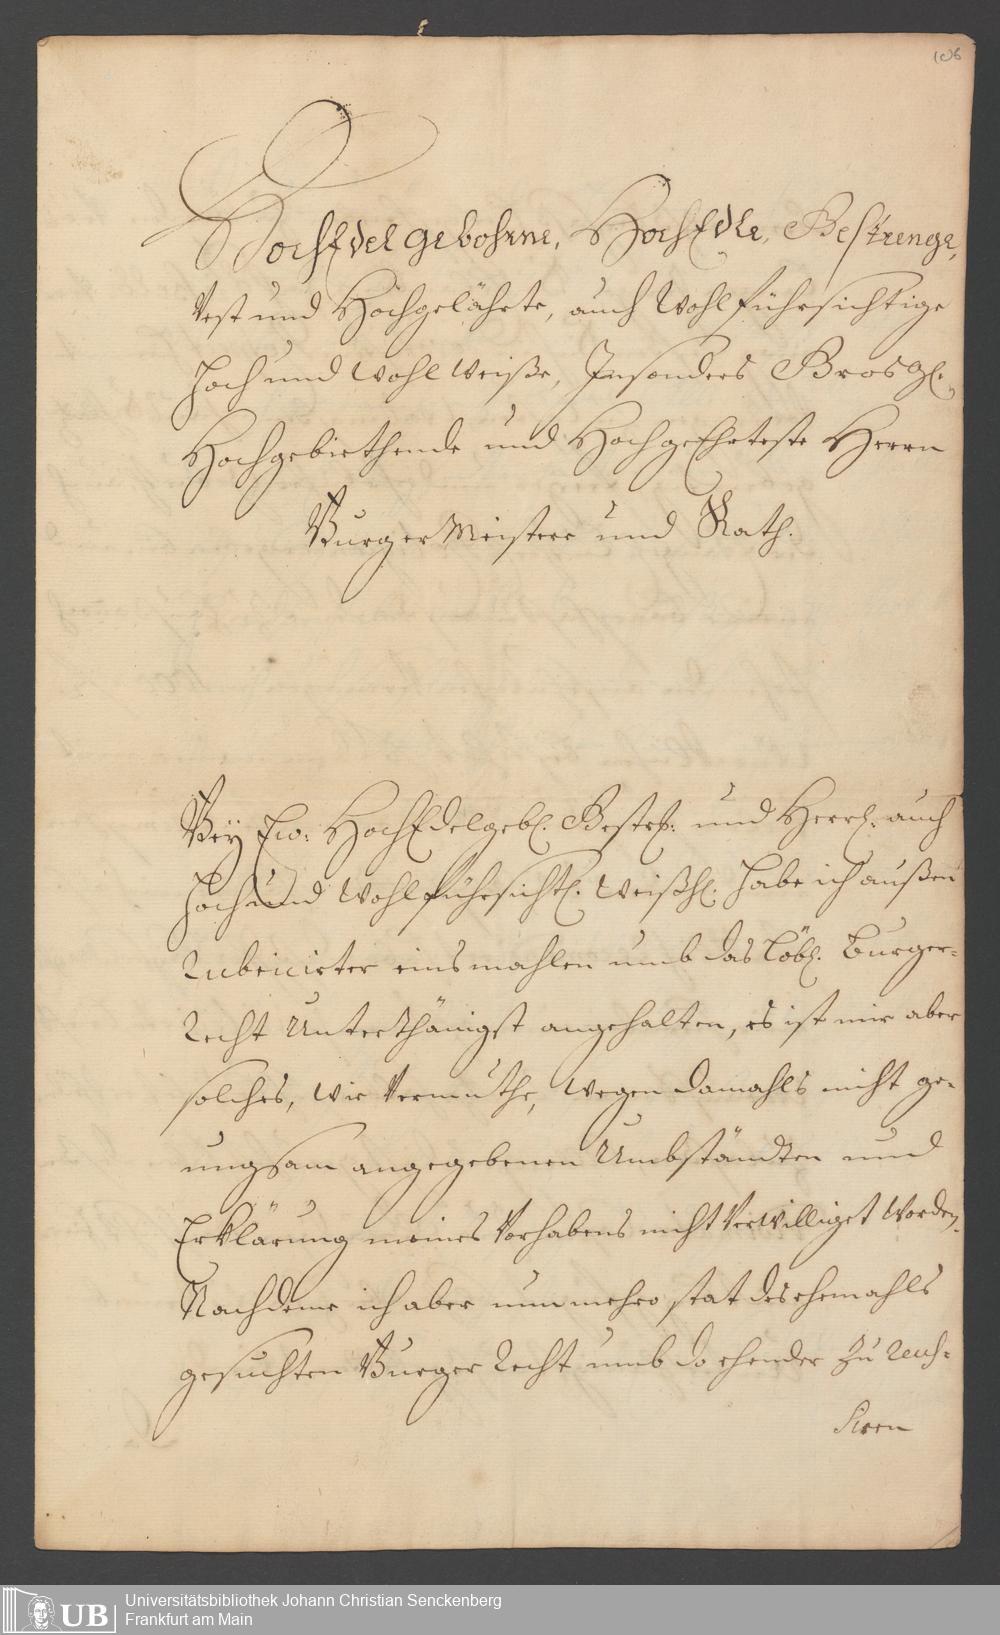 106
HochEdelgebohrne, HochEdle, Gestrenge,
Vest und Hochgelährte, auch Wohlführsichtige
Hoch und Wohlweiße, Insonders Großgl.
Hochgebiethende und HochgeEhrteste Herrn
BurgerMeistere und Rath.
Bey Ew: HochEdelgebl. Gestr: und Herrl. auch
Hoch und Wohlführsichtl. Weißhl. habe ich außen
Rubricirter einsmahlen umb das Löbl. Burger-
Recht Unterthänigst angehalten, es ist mir aber
solches, wie Vermuthe, wegen damahls nicht ge-
nugsam angegebenen Umbständten und
Erklärung meines Vorhabens nicht Verwilliget worden,
Nachdeme ich aber nunmehro statt des ehemahls
gesuchten Burger Recht umb do ehender zu reus-
siren
UB
Universitätsbibliothek Johann Christian Senckenberg
Frankfurt am Main